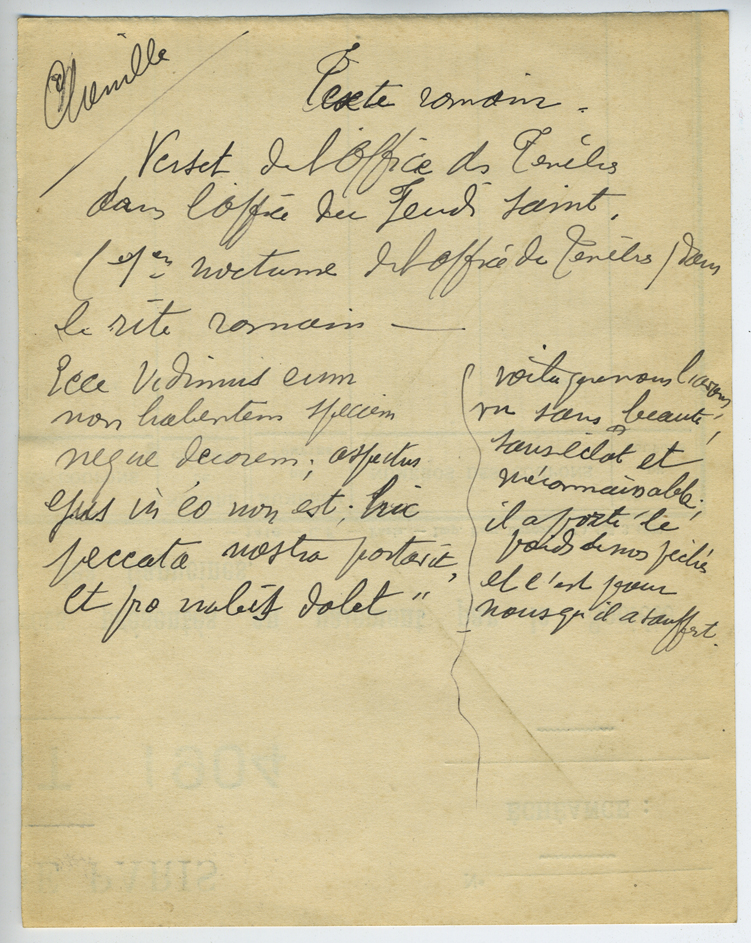 Chenille
Texte romain.
Verset de l'Office des Ténèbres
dans l'office du Jeudi Saint.
(1er nocturne de l'office de Ténèbres) dans
le rite romain —
Ecce vidimus eum
non habentem speciem
neque decorem; aspectus
ejus in eo non est; hic
peccata nostra portavit,
et pro nobis dolet "
voilà que nous l'avons
vu sans beauté,
sans éclat et
méconnaissable;
il a porté le
poids de nos péchés
et c'est pour
nous qu'il a souffert.
1904
PARIS